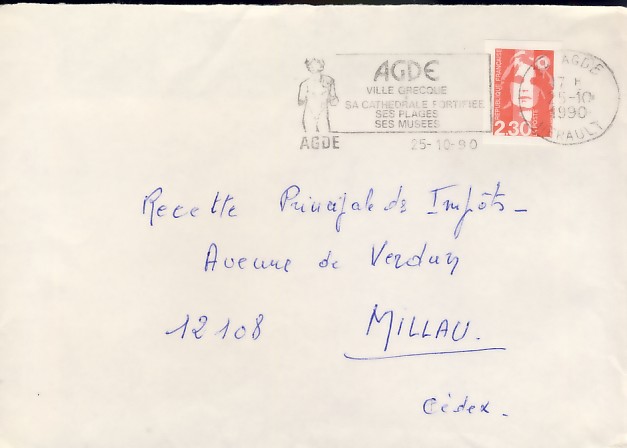 AGDE
VILLE GRECQUE
SA CATHEDRALE FORTIFIEE
SES PLAGES
SES MUSEES
AGDE
25-10-90
REPUBLIQUE FRANÇAISE
2,30
POSTE
AGDE
17 H
25-10
1990
HERAULT
Recette Principale des Impôts_
Avenue de Verdun
12108 MILLAU.
Cédex.